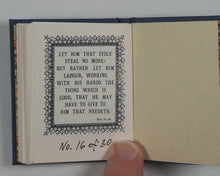 LET HIM THAT STOLE
STEAL NO MORE:
BUT RATHER LET HIM
LABOUR, WORKING
WITH HIS HANDS THE
THING WHICH IS
GOOD, THAT HE MAY
HAVE TO GIVE TO
HIM THAT NEEDETH.
No. 16 of 30